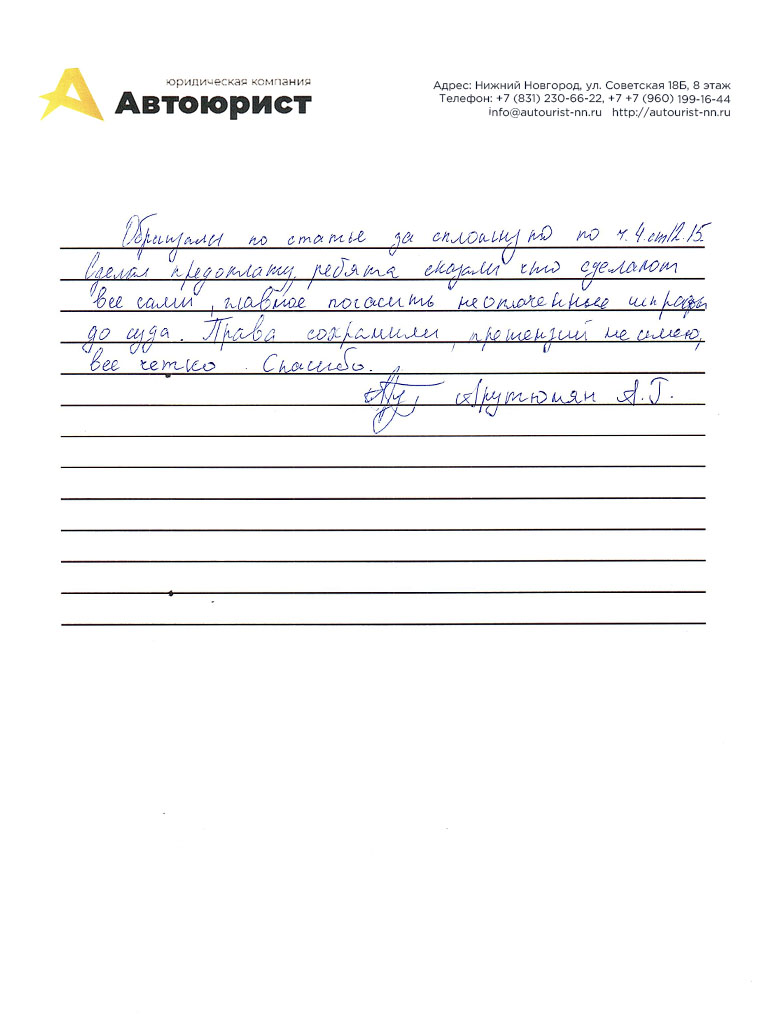 юридическая компания
Автоюрист
Адрес: Нижний Новгород, ул. Советская 18Б, 8 этаж
Телефон: +7 (831) 230-66-22, +7 +7 (960) 199-16-44
info@autourist-nn.ru http://autourist-nn.ru
по статье за сплошную по ч.4.ст12.15
Сделал предоплату, ребята сказали что сделают
все сами, главное погасить неоплаченные штрафы
до суда. Права сохранили, претензий не имею,
все четко. Спасибо.
Арутюмян А.Г.